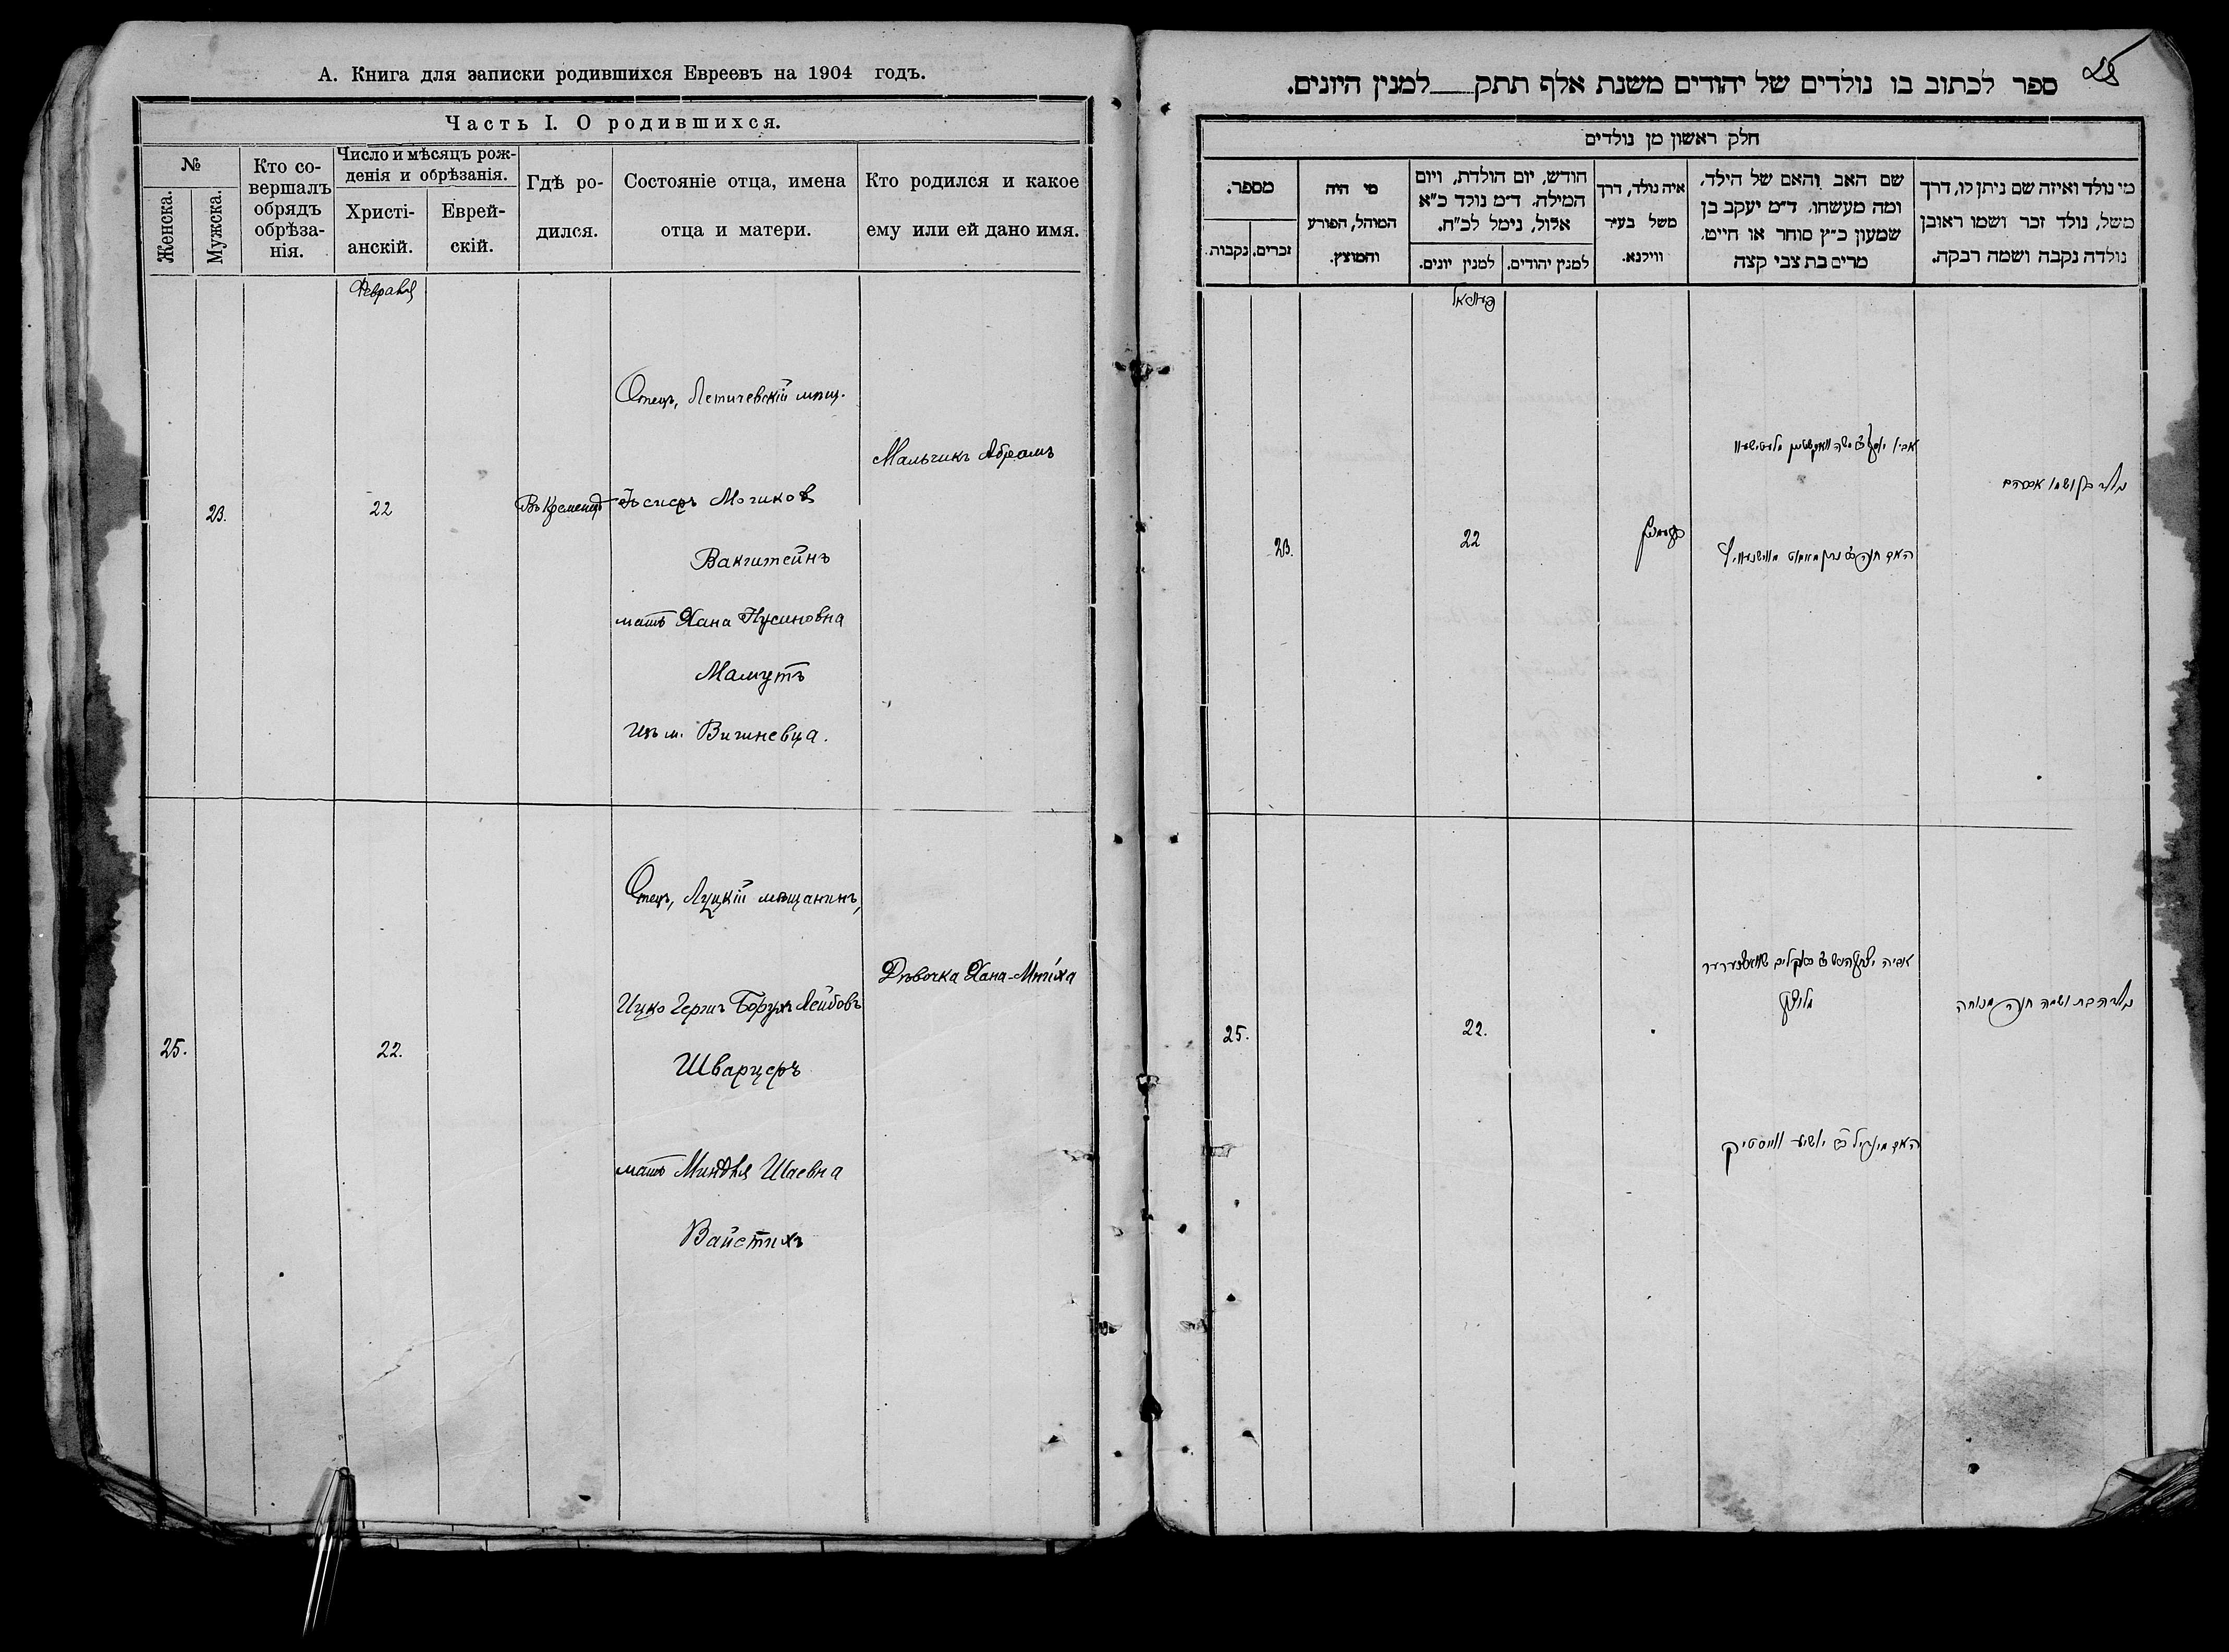 А. Книга для записки родившихся Евреевъ на 1904 годъ.
Часть I. О родившихся.
№
Женска.
Мужска.
Кто со-
вершалъ
обрядъ
обрѣза-
нія.
Число и мѣсяцъ рож-
денія и обрѣзанія.
Христі-
анскій.
Еврей-
скій.
Гдѣ ро-
дился.
Состояніе отца, имена
отца и матери.
Кто родился и какое
ему или ей дано имя.
Февраля
23.
22
Въ Кременцѣ
Отецъ, Летичевскій мѣщ.
Мошков
Вакштейнъ
мать Хана Нусиновна
Мамутъ
изъ м. Вишневца.
Мальчикъ Абрамъ
25.
22.
Отецъ, Луцкій мѣщанинъ,
Ицко Герш Борух Лейбовъ
Шварцеръ
мать Миндля Шаевна
Вайстихъ
Дѣвочка Хана-Мниха
25
ספר לכתוב בו נולדים של יהודים משנת אלף תתק למנין היונים.
חלק ראשון מן נולדים
מי נולד ואיזה שם ניתן לו, דרך
משל, נולד זכר ושמו ראובן
נולדה נקבה ושמה רבקה.
שם האב והאם של הילד,
ומה מעשהו. ד״מ יעקב בן
שמעון כ״ץ סוחר או חייט,
מרים בת צבי קצה
איה נולד, דרך
משל בעיר
ווילנא.
חודש, יום הולדת, ויום
המילה. ד״מ נולד כ״א
אלול, נימל לכ״ח.
למנין יהודים.
למנין יונים.
מי היה
המוהל, הפורע
והמוצץ.
מספר.
זכרים.
נקבות.
23.
22
נולד בן ושמו אברהם
25.
22.
נולדה בת ושמה חנה מנוחה